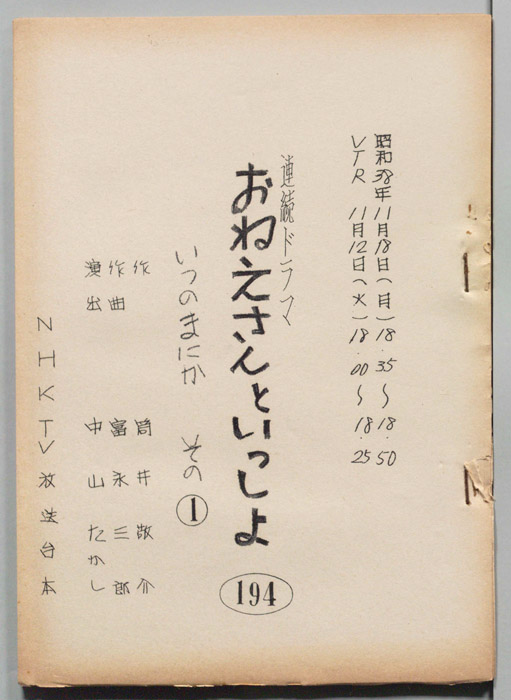 昭和38年11月18日(月)18.35〜18.50
VTR 11月12日(火)18.00〜18.25
連続ドラマ
おねえさんといっしよ
いつのまにか その①
194
作 筒井敬介
作曲 冨永三郎
演出 中山たかし
NHKTV放送台本